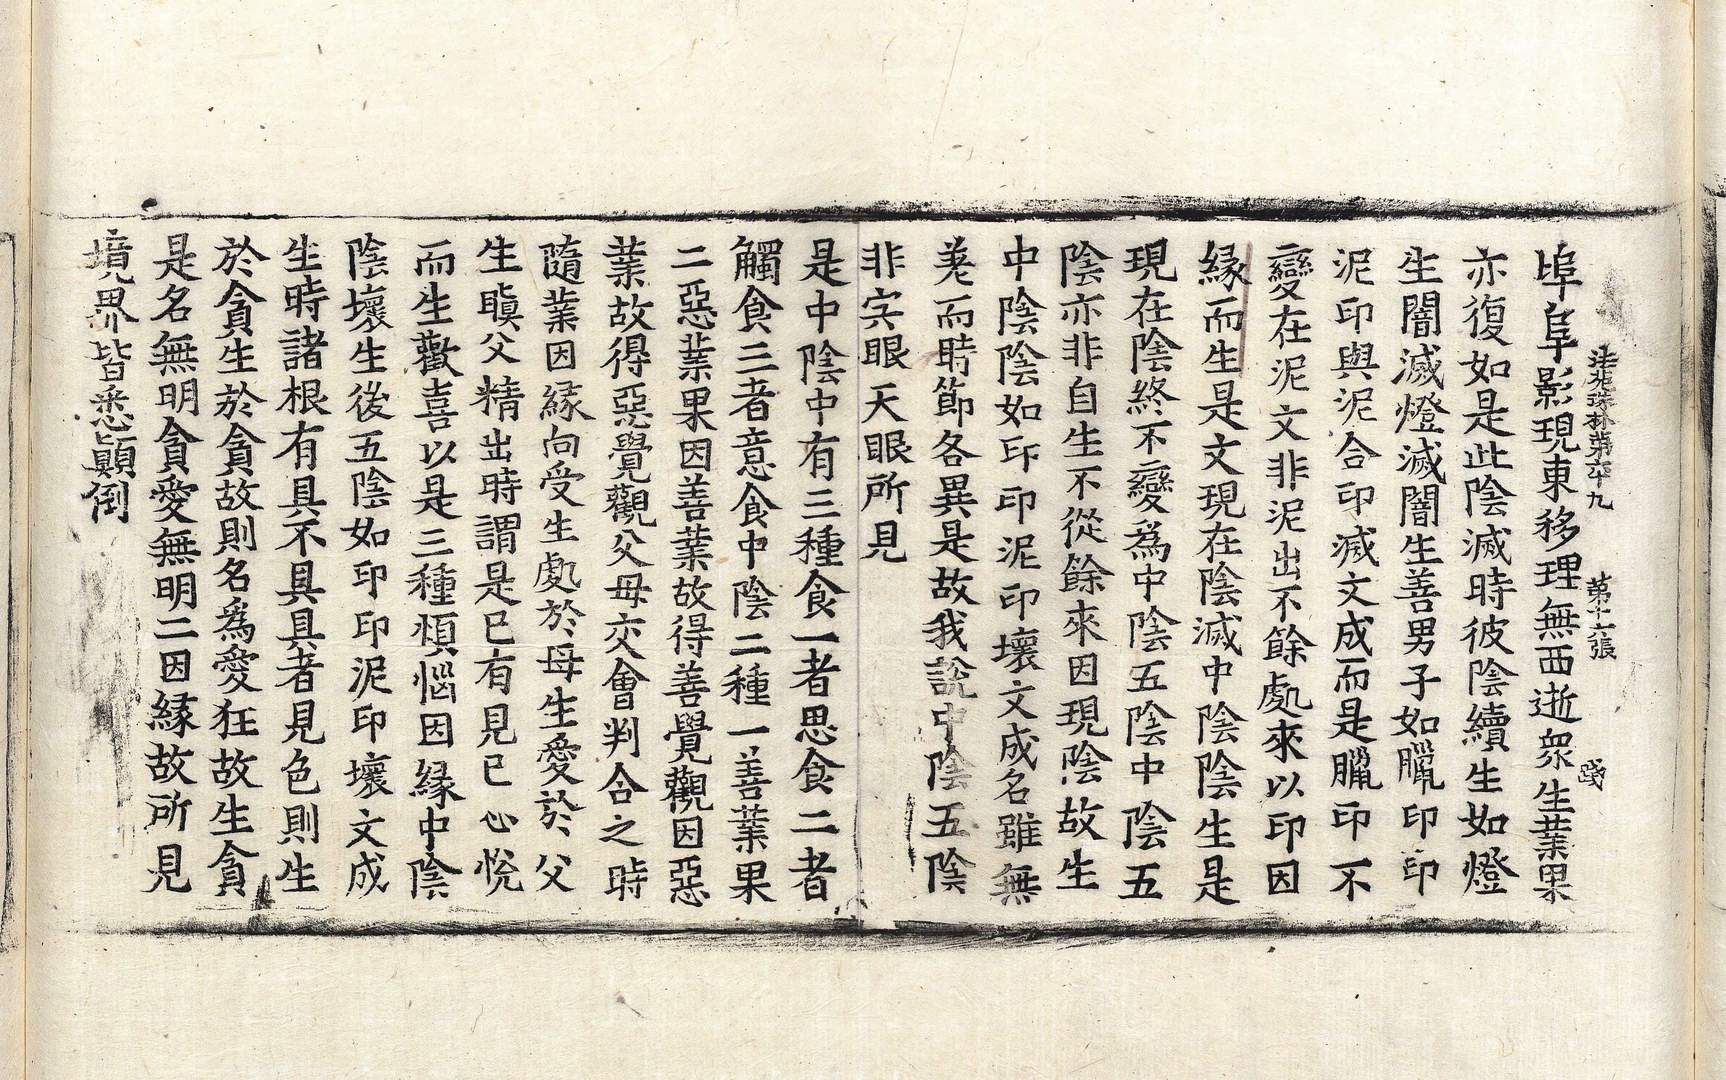 法苑珠林第六十九 第十一張 踐
埠阜影現東移理無西逝衆生業果
亦復如是此陰滅時彼陰續生如燈
生闇滅燈滅闇生善男子如臈印印
泥印與泥合印滅文成而是臈印不
變在泥文非泥出不餘處來以印因
緣而生是文現在陰滅中陰陰生是
現在陰終不變爲中陰五陰中陰五
陰亦非自生不從餘來因現陰故生
中陰陰如印印泥印壞文成名雖無
差而時節各異是故我說中陰五陰
非宍眼天眼所見
是中陰中有三種食一者思食二者
觸食三者意食中陰二種一善業果
二惡業果因善業故得善覺觀因惡
業故得惡覺觀父母交會判合之時
隨業因緣向受生處於母生愛於父
生瞋父精出時謂是已有見已心悅
而生歡喜以是三種煩惱因緣中陰
陰壞生後五陰如印印泥印壞文成
生時諸根有具不具具者見色則生
於貪生於貪故則名爲愛狂故生貪
是名無明貪愛無明二因緣故所見
境界皆悉顚倒